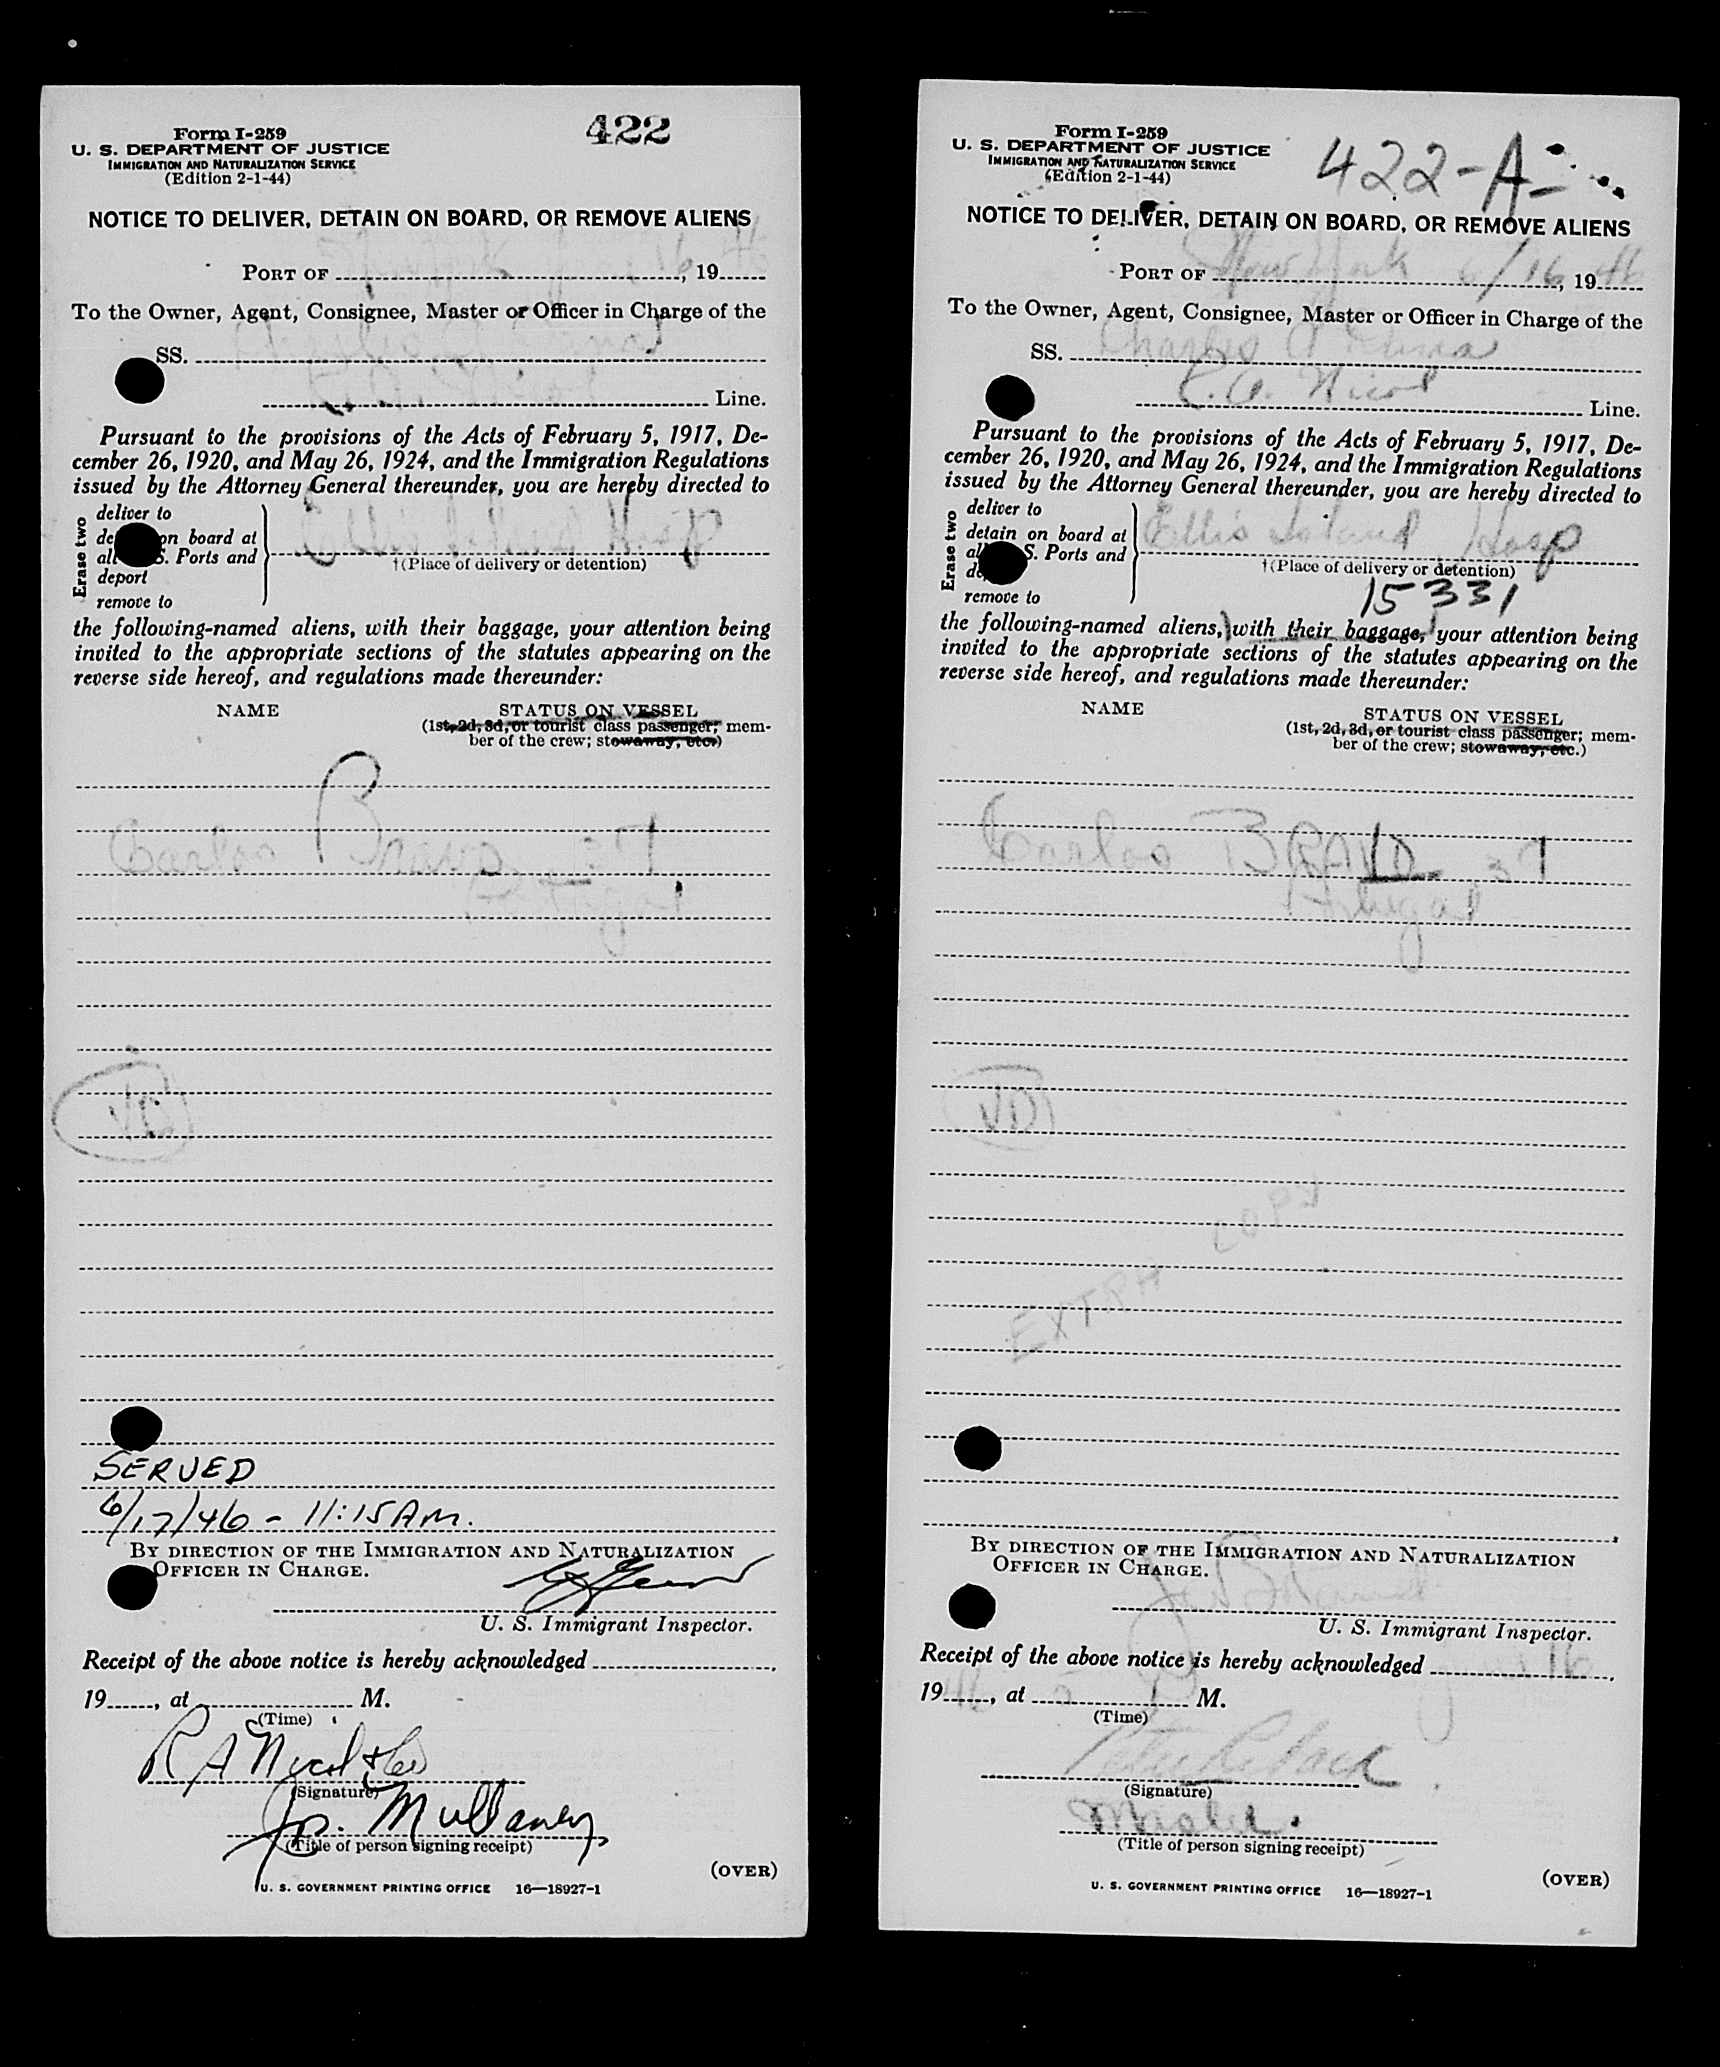 Form I-259
422
U. S. DEPARTMENT OF JUSTICE
IMMIGRATION AND NATURALIZATION SERVICE
(Edition 2-1-44)
NOTICE TO DELIVER, DETAIN ON BOARD, OR REMOVE ALIENS
PORT OF New York June 16, 1946
To the Owner, Agent, Consignee, Master or Officer in Charge of the
SS.
R. A. Nicol Line.
Pursuant to the provisions of the Acts of February 5, 1917, De-
cember 26, 1920, and May 26, 1924, and the Immigration Regulations
issued by the Attorney General thereunder, you are hereby directed to
Erase two
deliver to
on board at
all S. Ports and
deport
remove to
Ellis Island Hosp
†(Place of delivery or detention)
the following-named aliens, with their baggage, your attention being
invited to the appropriate sections of the statutes appearing on the
reverse side hereof, and regulations made thereunder:
NAME STATUS ON VESSEL
(1st, 2d, 3d, or tourist class passenger; mem-
ber of the crew; stowaway, etc.)
Carlos Bravo 37
Portugal
SERVED
6/17/46 - 11:15 AM.
BY DIRECTION OF THE IMMIGRATION AND NATURALIZATION
OFFICER IN CHARGE.
U. S. Immigrant Inspector.
Receipt of the above notice is hereby acknowledged
19 , at M.
(Time)
R A Nicol & Co
(Signature)
Jos. Mullaney
(Title of person signing receipt)
(OVER)
U. S. GOVERNMENT PRINTING OFFICE 16—18927-1
Form I-259
U. S. DEPARTMENT OF JUSTICE
IMMIGRATION AND NATURALIZATION SERVICE
(Edition 2-1-44)
422-A-
NOTICE TO DELIVER, DETAIN ON BOARD, OR REMOVE ALIENS
PORT OF New York 6/16, 1946
To the Owner, Agent, Consignee, Master or Officer in Charge of the
SS. Charles A
R. A. Nicol Line.
Pursuant to the provisions of the Acts of February 5, 1917, De-
cember 26, 1920, and May 26, 1924, and the Immigration Regulations
issued by the Attorney General thereunder, you are hereby directed to
Erase two
deliver to
detain on board at
all S. Ports and
remove to
Ellis Island Hosp
†(Place of delivery or detention)
15331
the following-named aliens, with their baggage, your attention being
invited to the appropriate sections of the statutes appearing on the
reverse side hereof, and regulations made thereunder:
NAME STATUS ON VESSEL
(1st, 2d, 3d, or tourist class passenger; mem-
ber of the crew; stowaway, etc.)
Carlos BRAVO 37
Portugal
VD
EXTRA COPY
BY DIRECTION OF THE IMMIGRATION AND NATURALIZATION
OFFICER IN CHARGE.
U. S. Immigrant Inspector.
Receipt of the above notice is hereby acknowledged June 16
1946, at 5 P M.
(Time)
(Signature)
Master
(Title of person signing receipt)
(OVER)
U. S. GOVERNMENT PRINTING OFFICE 16—18927-1